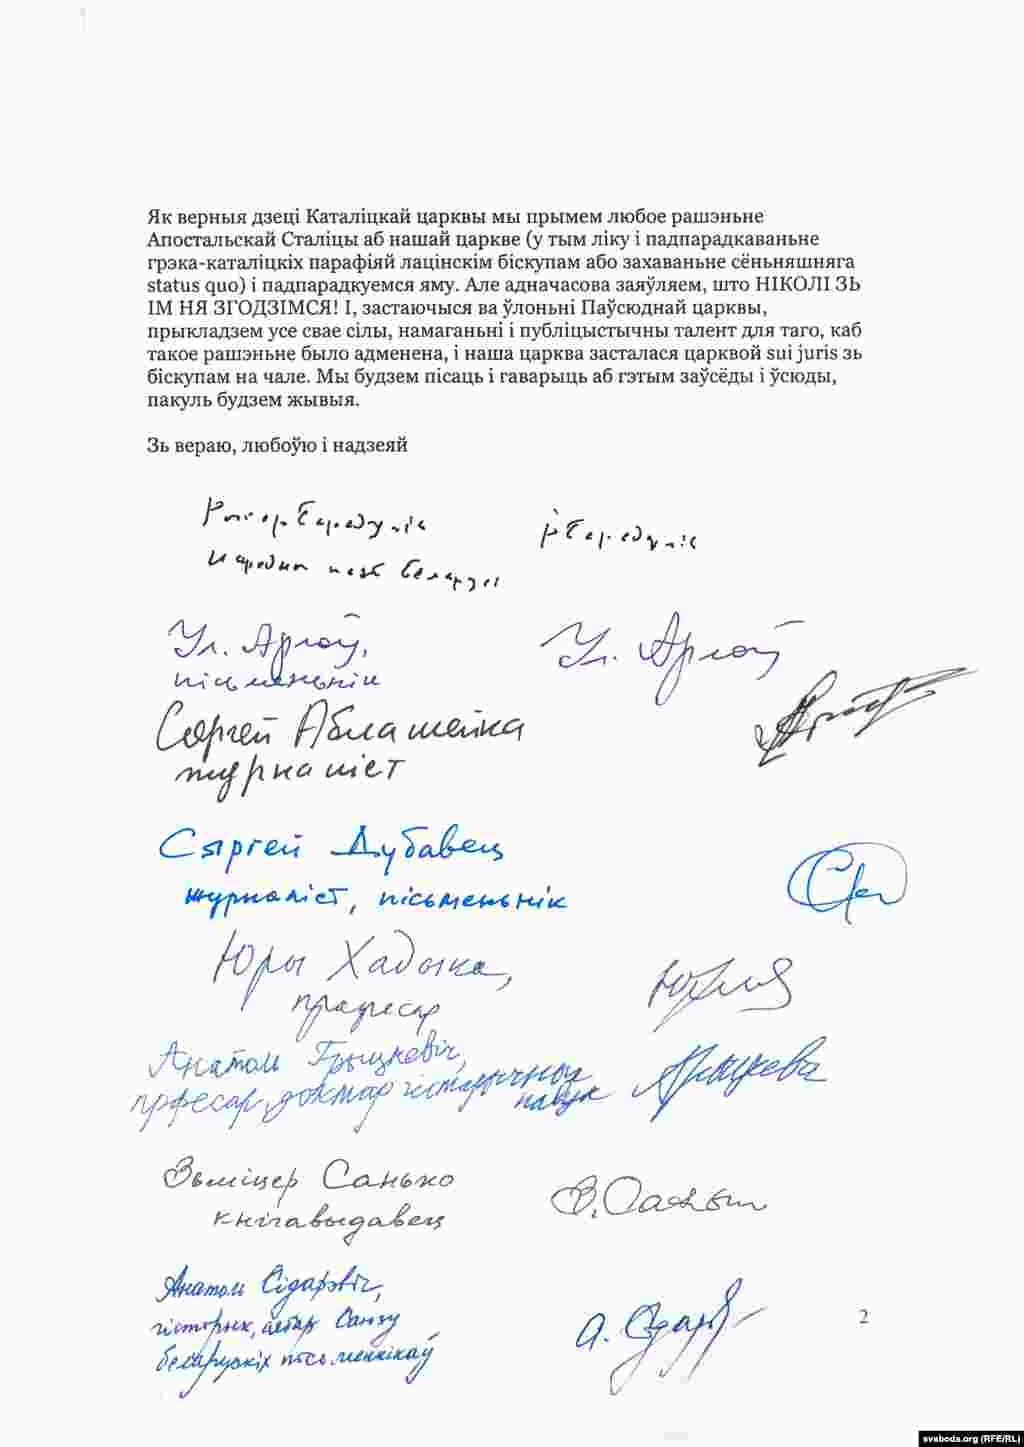 Як верныя дзеці Каталіцкай царквы мы прымем любое рашэньне
Апостальскай Сталіцы аб нашай царкве (у тым ліку і падпарадкаваньне
грэка-каталіцкіх парафіяй лацінскім біскупам або захаваньне сёньняшняга
status quo) і падпарадкуемся яму. Але адначасова заяўляем, што НІКОЛІ ЗЬ
ІМ НЯ ЗГОДЗІМСЯ! І, застаючыся ва ўлоньні Паўсюднай царквы,
прыкладзем усе свае сілы, намаганьні і публіцыстычны талент для таго, каб
такое рашэньне было адменена, і наша царква засталася царквой sui juris зь
біскупам на чале. Мы будзем пісаць і гаварыць аб гэтым заўсёды і ўсюды,
пакуль будзем жывыя.
Зь вераю, любоўю і надзеяй
Рыгор Барадулін Р Барадулін
народны паэт Беларусі
Ул. Арлоў, Ул. Арлоў
пісьменьнік
Сяргей Аблашейка
журналіст
Сяргей Дубавец
журналіст, пісьменьнік
Юры Хадыка,
прафесар
Анатоль Грыцкевіч,
прфесар, доктар гістарычных
навук
Зьміцер Санько З. Санько
кнігавыдавец
Анатоль Сідарэвіч,
гісторык, сябар Саюзу А. Сідарэв
беларускіх пісьменнікаў
2
svaboda.org (RFE/RL)